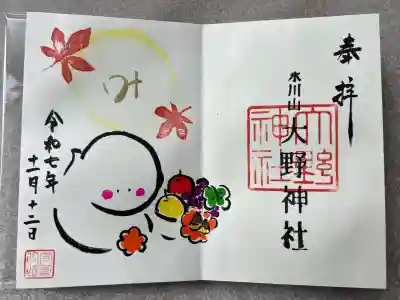 奉拝
氷川山
大野神社
大野神社
み
令和七年
十一月十二日